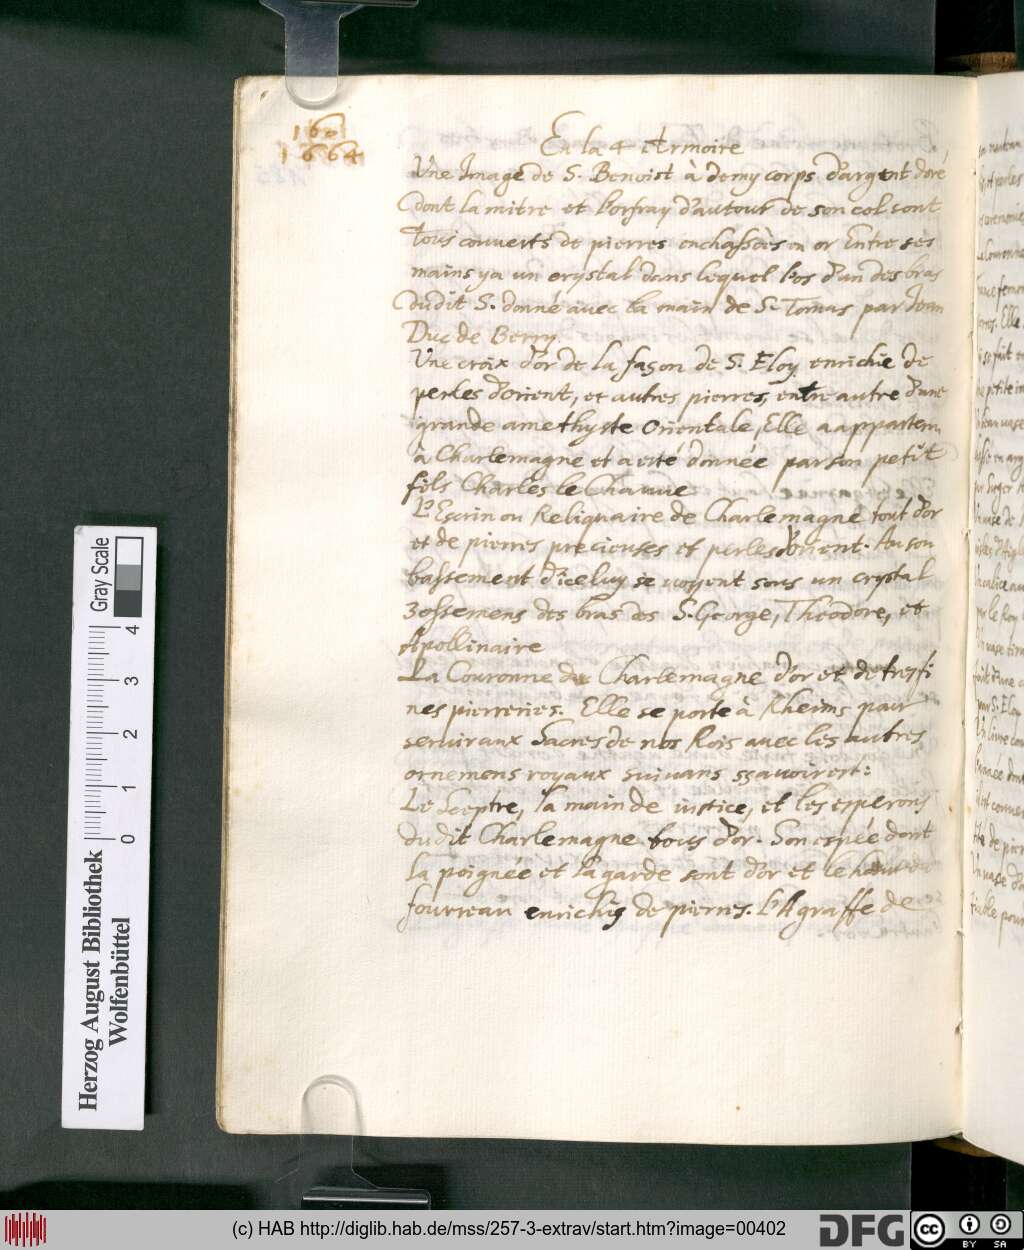 160
1664
En la 4 Armoire
Une Image de S. Benoist à demy corps d'argent doré
dont la mitre et l'orfray d'autour de son col sont
tous couverts de pierres enchassées en or Entre ses
mains ya un crystal dans lequel l'os d'un des bras
dudit S. donné avec la main de S. Tomas par Jean
Duc de Berry.
Une croix d'or de la façon de S. Eloy enrichie de
perles d'orient, et autres pierres, entre autre d'une
grande amethyste Orientale, Elle a appartenu
à Charlemagne et a esté donnée par son petit
fils Charles le Chauve
L'Escrin ou Reliquaire de Charlemagne tout d'or
et de pierres precieuses et perles d'orient. Au son
bassement d'iceluy se voyent sous un crystal
3 ossemens des bras des S. George, Theodore, et
Apollinaire
La Couronne de Charlemagne d'or et de tresfi
nes pierreries. Elle se porte à Rheims pour
servir aux Sacres de nos Rois avec les autres
ornemens royaux suivans sçavoir est:
Le Sceptre, la main de iustice, et les esperons
dudit Charlemagne tous d'or. Son espée dont
la poignée et la garde sont d'or et le haut de
fourreau enrichis de pierres. L'Agraffe de
Gray Scale
0 1 2 3 4
Herzog August Bibliothek
Wolfenbüttel
(c) HAB http://diglib.hab.de/mss/257-3-extrav/start.htm?image=00402
DFG
cc
BY SA